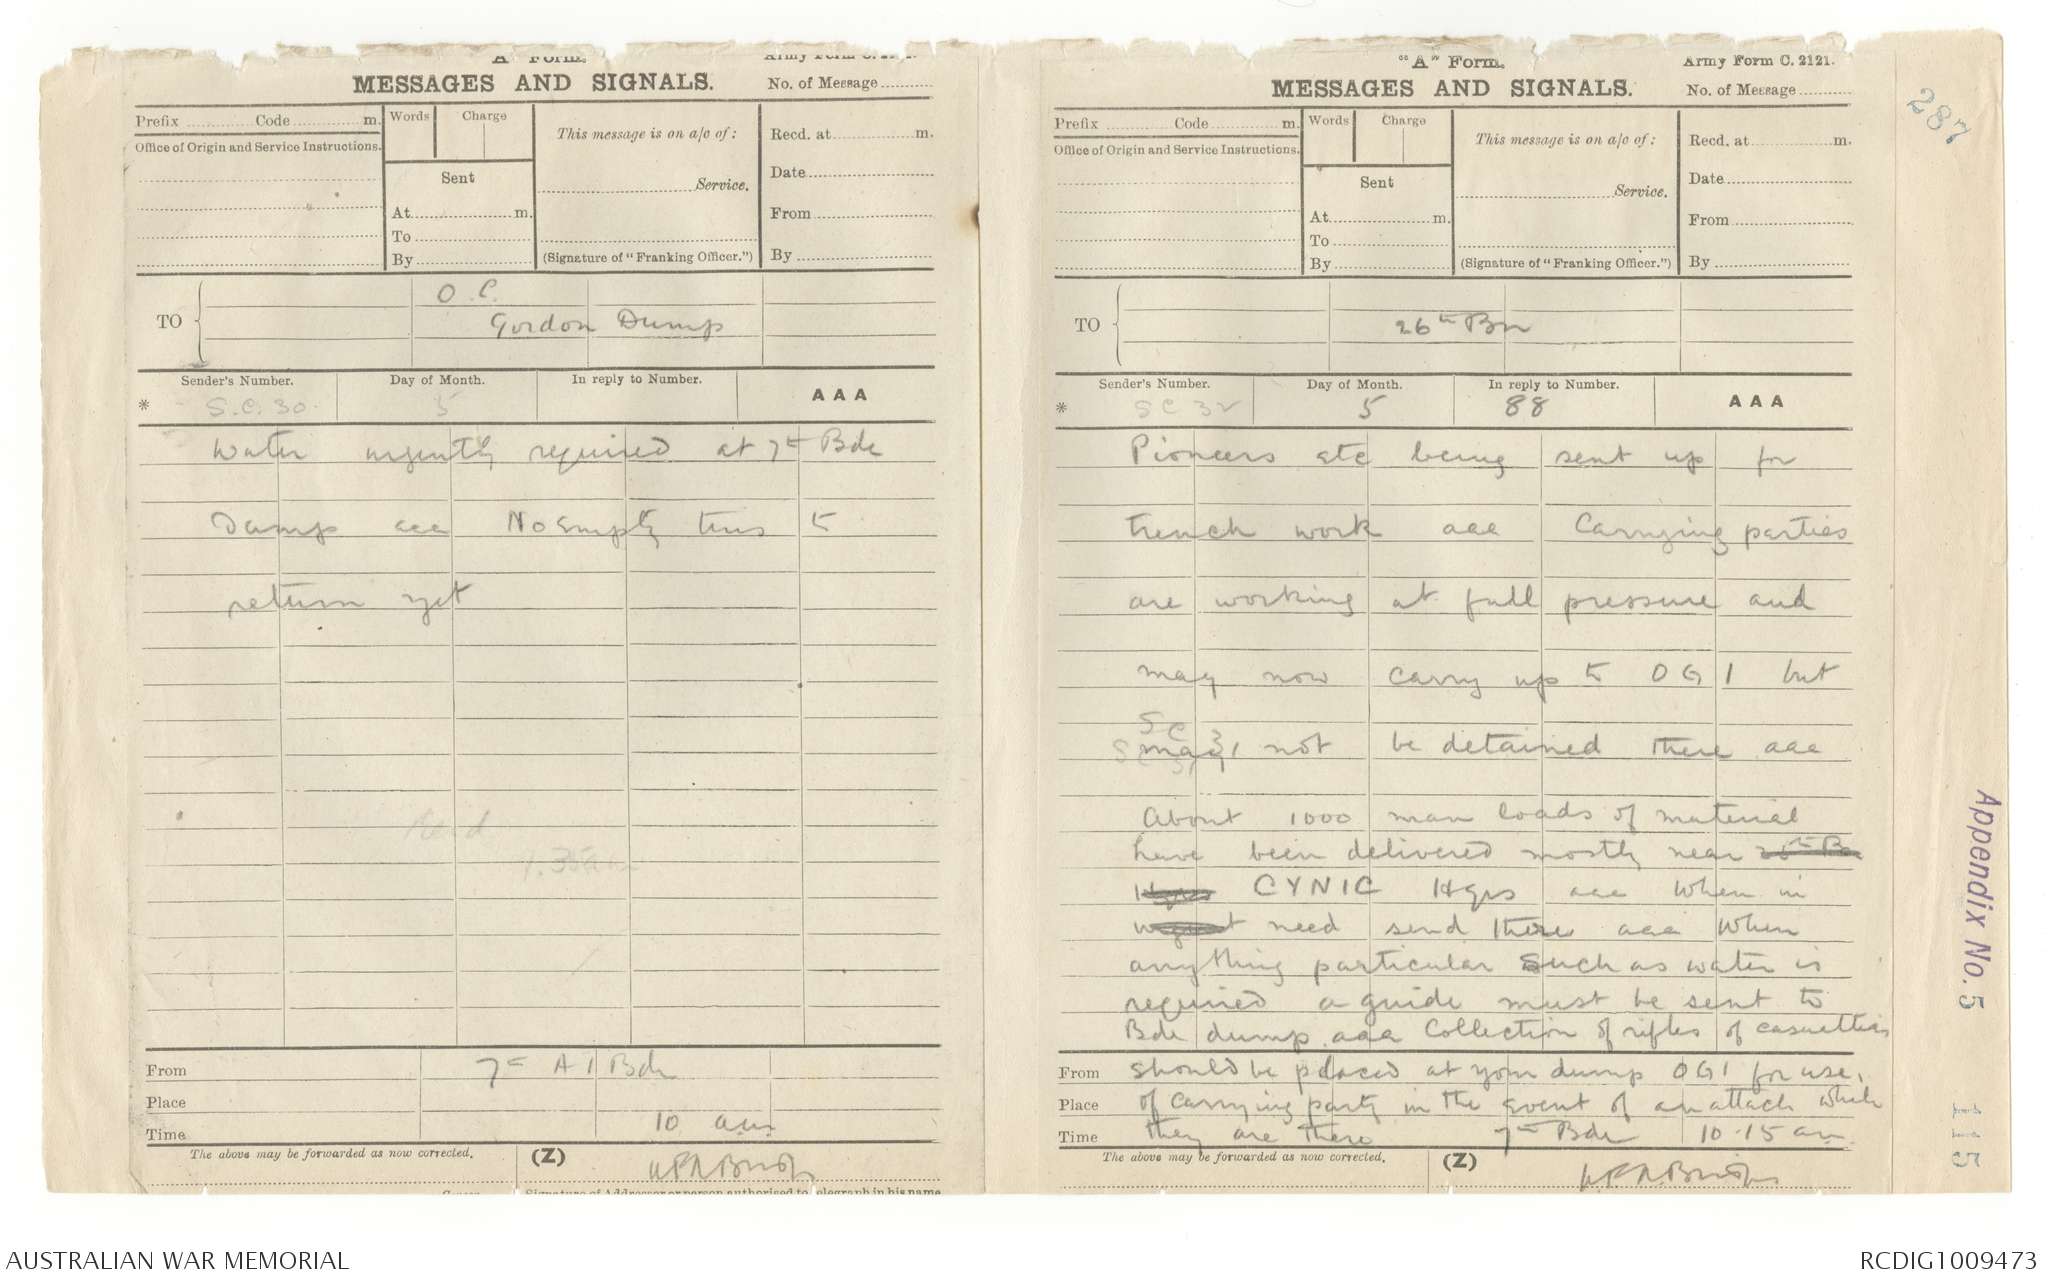 "A" Form.
Army Form C. 2121.
MESSAGES AND SIGNALS.
No. of Message
Prefix Code m.
Words Charge
This message is on a/c of:
Recd. at m.
Office of Origin and Service Instructions.
Sent
Service.
Date
At m.
From
To
By
(Signature of "Franking Officer.")
By
TO
O.C.
Gordon Dump
Sender's Number.
Day of Month.
In reply to Number.
AAA
* S.C. 30. 5
Water urgently required at 7th Bde
Dump aaa No empty tins to
return yet
Recd
7.35am
From 7th A I Bde
Place
Time 10 am
The above may be forwarded as now corrected.
(Z)
"A" Form.
Army Form C. 2121.
MESSAGES AND SIGNALS.
No. of Message
287
Prefix Code m.
Words Charge
This message is on a/c of:
Recd. at m.
Office of Origin and Service Instructions.
Sent
Service.
Date
At m.
From
To
By
(Signature of "Franking Officer.")
By
TO
26th Bn
Sender's Number.
Day of Month.
In reply to Number.
AAA
* SC 32 5 88
Pioneers etc being sent up for
trench work aaa Carrying parties
are working at full pressure and
may now carry up to OG 1 but
SC 31
may not be detained there aaa
About 1000 man loads of material
have been delivered mostly near 26th Bn
Hqrs CYNIC Hqrs aaa When in
need send there aaa When
anything particular such as water is
required a guide must be sent to
Bde dump aaa Collection of rifles of casualties
From should be placed at your dump OG1 for use,
Place of carrying party in the event of an attack while
Time they are there 7th Bde 10-15 am
The above may be forwarded as now corrected.
(Z)
Appendix No. 5
115
AUSTRALIAN WAR MEMORIAL
RCDIG1009473